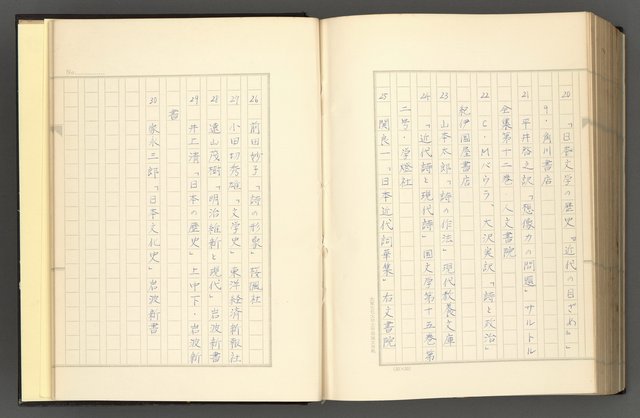 20 「日本文学の歴史「近代の目ざめ」」
9・角川書店
21 平井啓之訳「想像力の問題」サルトル
全集第十二巻 人文書院
22 C・Mバウラ、大沢実訳「詩と政治」
紀伊国屋書店
23 山本太郎「詩の作法」現代教養文庫
24 「近代詩と現代詩」国文学第十五巻第
二号・学燈社
25 関良一「日本近代詞華集」右文書院
(20×20)
No.
26 前田妙子「詩の形象」桜楓社
27 小田切秀雄「文学史」東洋経済新報社
28 遠山茂樹「明治維新と現代」岩波新書
29 井上清「日本の歴史」上中下・岩波新
書
30 家永三郎「日本文化史」岩波新書